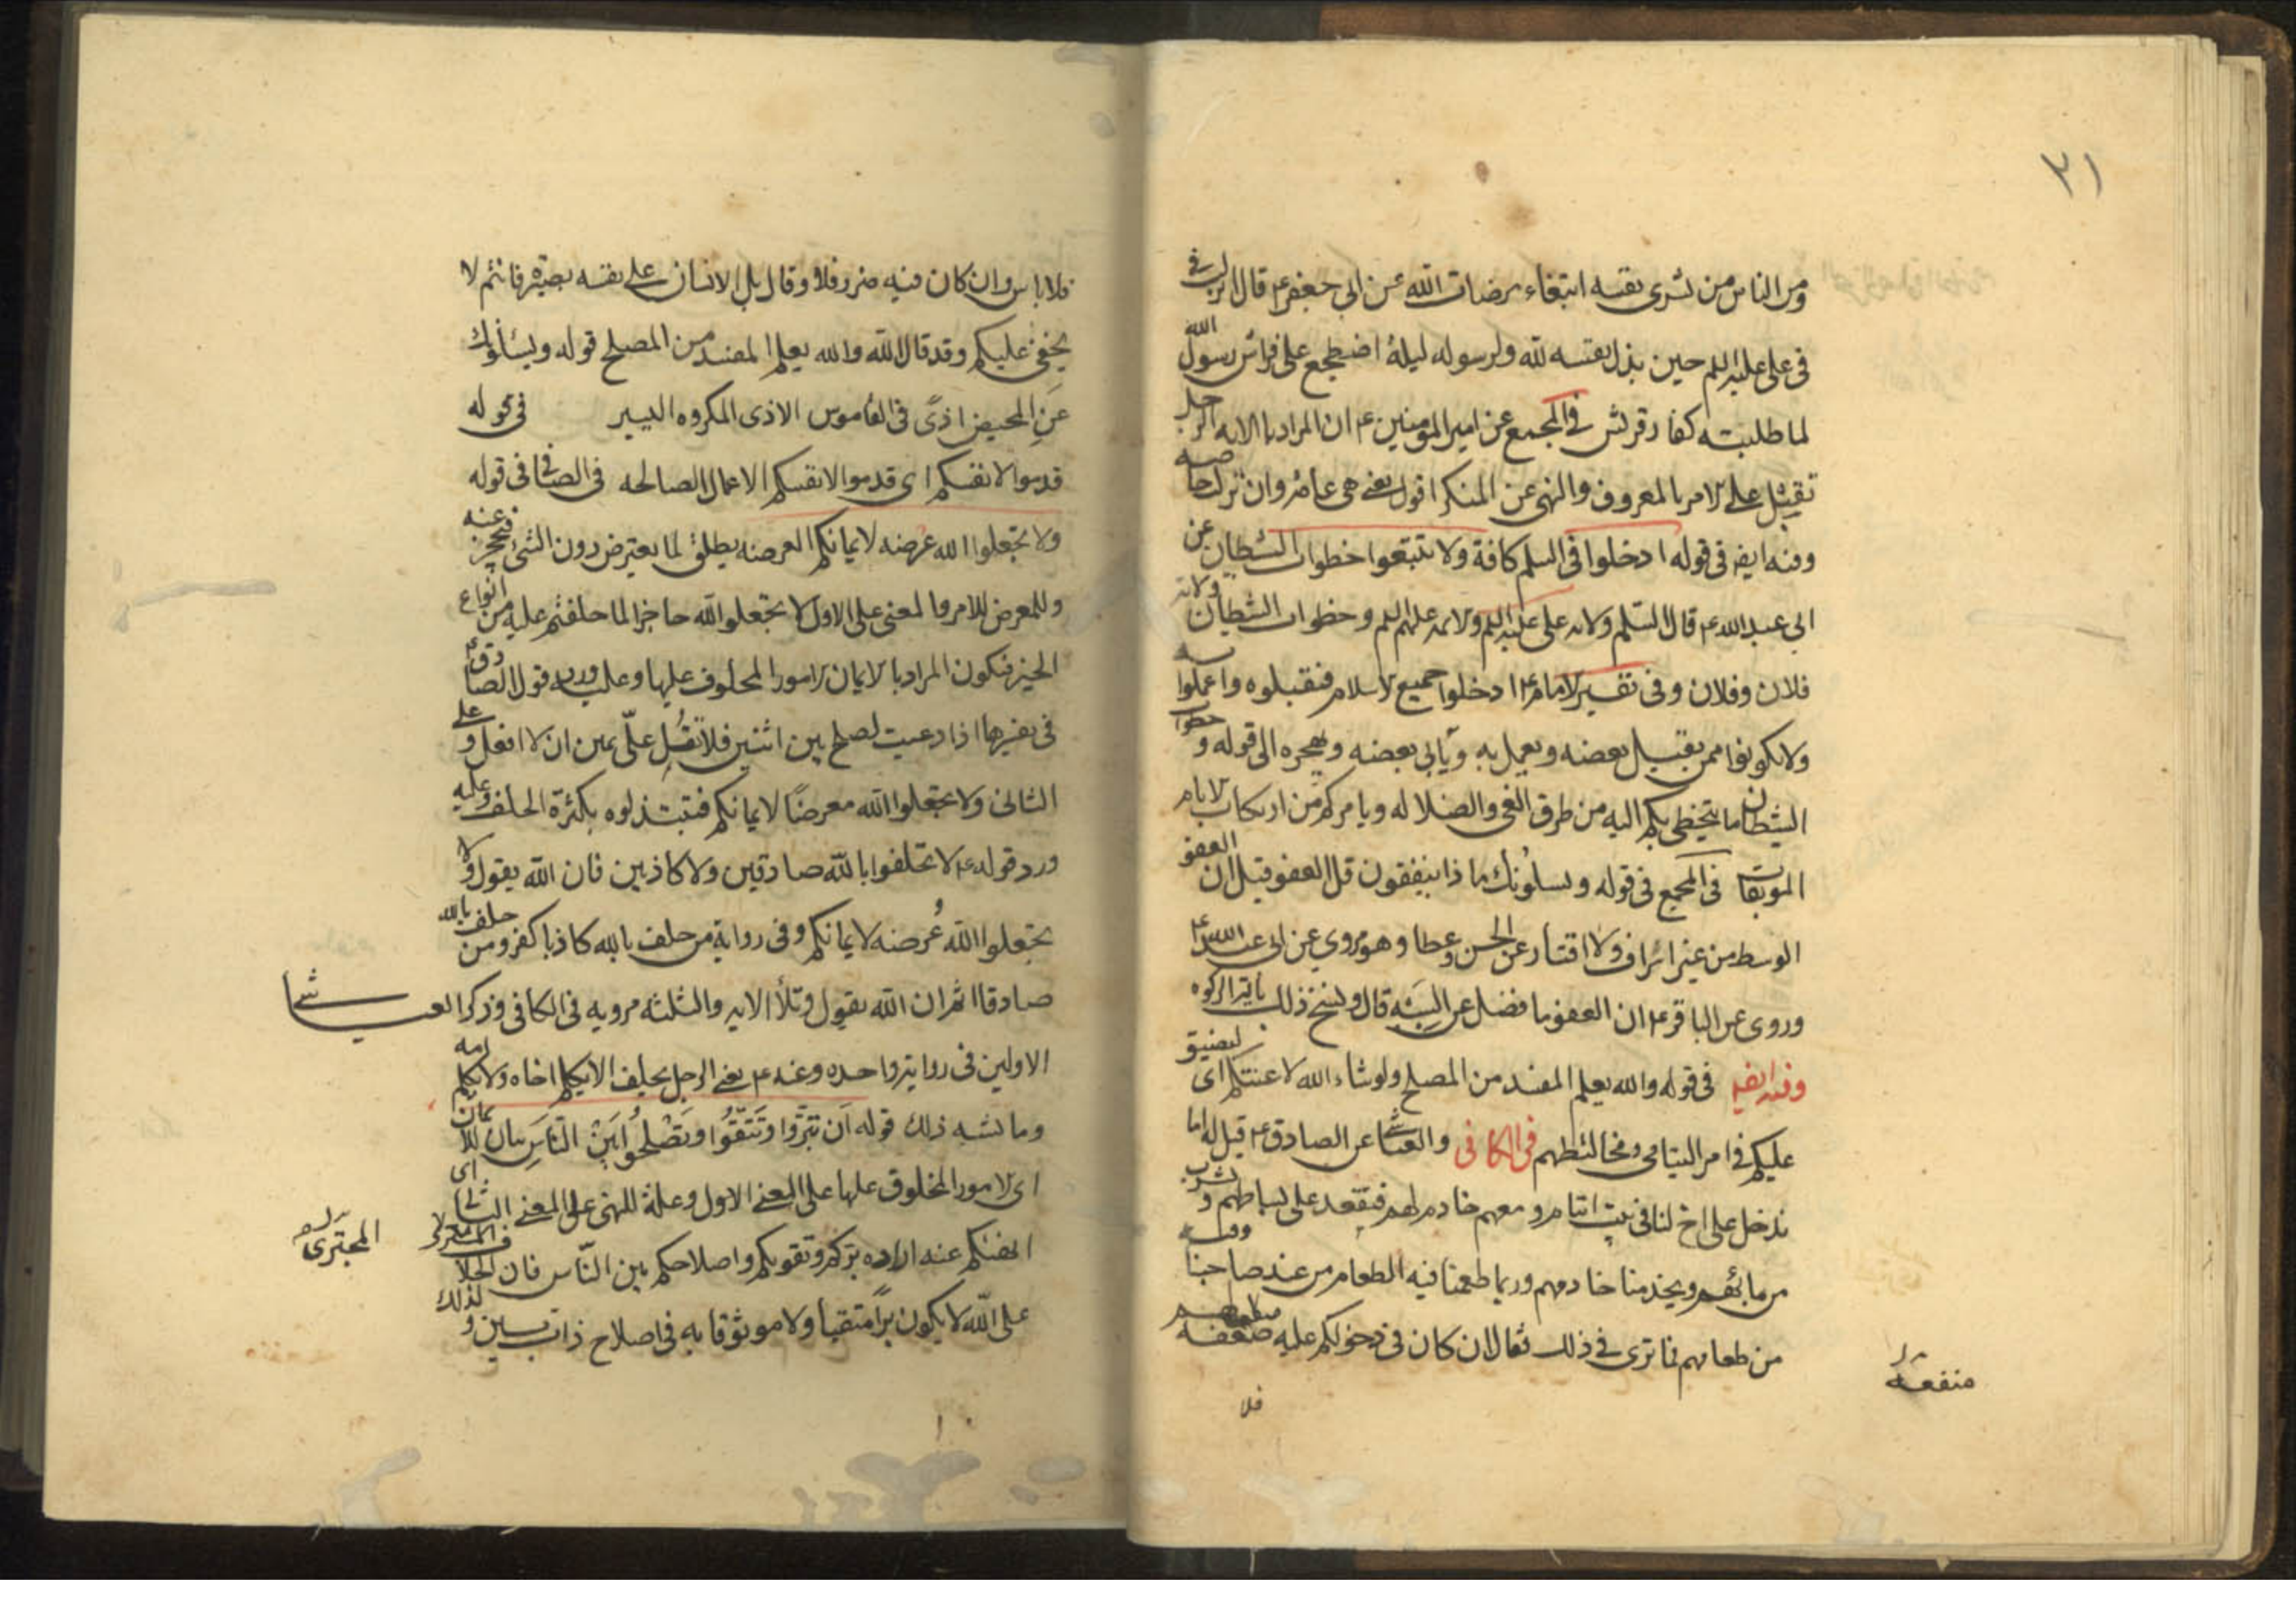 ٣١
ومن الناس من يشرى نفسه ابتغاء مرضات الله عن ابى جعفر ع قال انزلت فى
فى على عليه السلم حين بذل نفسه لله ولرسوله ليلة اضطجع على فراش رسول الله
لما طلبته كفار قريش فى المجمع عن امير المومنين ع ان المراد بالايه الرجل
يقتل على الامر بالمعروف والنهى عن المنكر اقول يعنى هى عامة وان نزلت خاصه
وفيه ايضا فى قوله ادخلوا فى السلم كافة ولا تتبعوا خطوات الشيطان عن
ابى عبد الله ع قال السلم ولايه على عليه السلم والائمه عليهم السلم وخطوات الشيطان ولاية
فلان وفلان وفى تفسير الامام ع ادخلوا جميع الاسلام فتقبلوه واعملوا به
ولا تكونوا ممن يقبل بعضه ويعمل به ويأبى بعضه ويهجره الى قوله وخطوات
الشيطان ما يتخطى بكم اليه من طرق الغى والضلاله ويامركم من ارتكاب الاثام
الموبقات فى المجمع فى قوله ويسئلونك ماذا ينفقون قل العفو قيل ان العفو
الوسط من غير اسراف ولا اقتار عن الحسن وعطا وهو مروي عن ابى عبد الله ع
وروى عن الباقر ع ان العفو ما فضل عن السنة قال ونسخ ذلك باية الزكوه
وفيه ايضا فى قوله والله يعلم المفسد من المصلح ولو شاء الله لاعنتكم اى لضيق
عليكم فى امر اليتامى ومخالطتهم فى الكافى والعياشى عن الصادق ع قيل له انا
ندخل على اخ لنا فى بيت ايتام ومعهم خادم لهم فنقعد على بساطهم ونشرب
من مائهم ويخدمنا خادمهم وربما طعمنا فيه الطعام من عند صاحبنا وفيه
من طعامهم فما ترى فى ذلك فقال ان كان فى دخولكم عليه منفعة لهم
منفعة
فلا
فلا باس وان كان فيه ضرر فلا وقال بل الانسان على نفسه بصيرة فانتم لا
يخفى عليكم وقد قال الله والله يعلم المفسد من المصلح قوله ويسئلونك
عن المحيض اذى فى القاموس الاذى المكروه اليسير فى قوله
قدموا لانفسكم اى قدموا لانفسكم الاعمال الصالحه فى الصافى فى قوله
ولا تجعلوا الله عرضه لايمانكم العرضه يطلق لما يعترض دون الشئ فيحجز عنه
وللمعرض للامر والمعنى على الاول لا تجعلوا الله حاجزا لما حلفتم عليه من انواع
الخير فيكون المراد بالايمان الامور المحلوف عليها وعليه ورد قول الصادق ع
فى تفسيرها اذا دعيت لصلح بين اثنين فلا تقل علىّ يمين ان لا افعل وعلى
الثانى ولا تجعلوا الله معرضًا لايمانكم فتبتذلوه بكثرة الحلف وعليه
ورد قوله ع لا تحلفوا بالله صادقين ولا كاذبين فان الله يقول ولا
تجعلوا الله عُرضه لايمانكم وفى رواية من حلف بالله كاذبا كفر ومن حلف بالله
صادقا اثم ان الله يقول وتلا الايه والثلثه مرويه فى الكافى وذكر العياشى
الاولين فى رواية واحده وعنه ع يعنى الرجل يحلف الا يكلم اخاه ولا يكلم امه
وما يشبه ذلك قوله اَن تَبَرّوا وَتَتَّقُوا وَتُصْلِحُوا بَيْنَ النَّاسِ بيان للايمان
اى الامور المحلوف عليها على المعنى الاول وعلة للنهى على المعنى الثانى اى
انهيكم عنه اراده بركم وتقويكم واصلاحكم بين النّاس فان الحلاف المجترى
المجترى
على الله لا يكون برًا متقيا ولا موثوقا به فى اصلاح ذات البين ولذلك